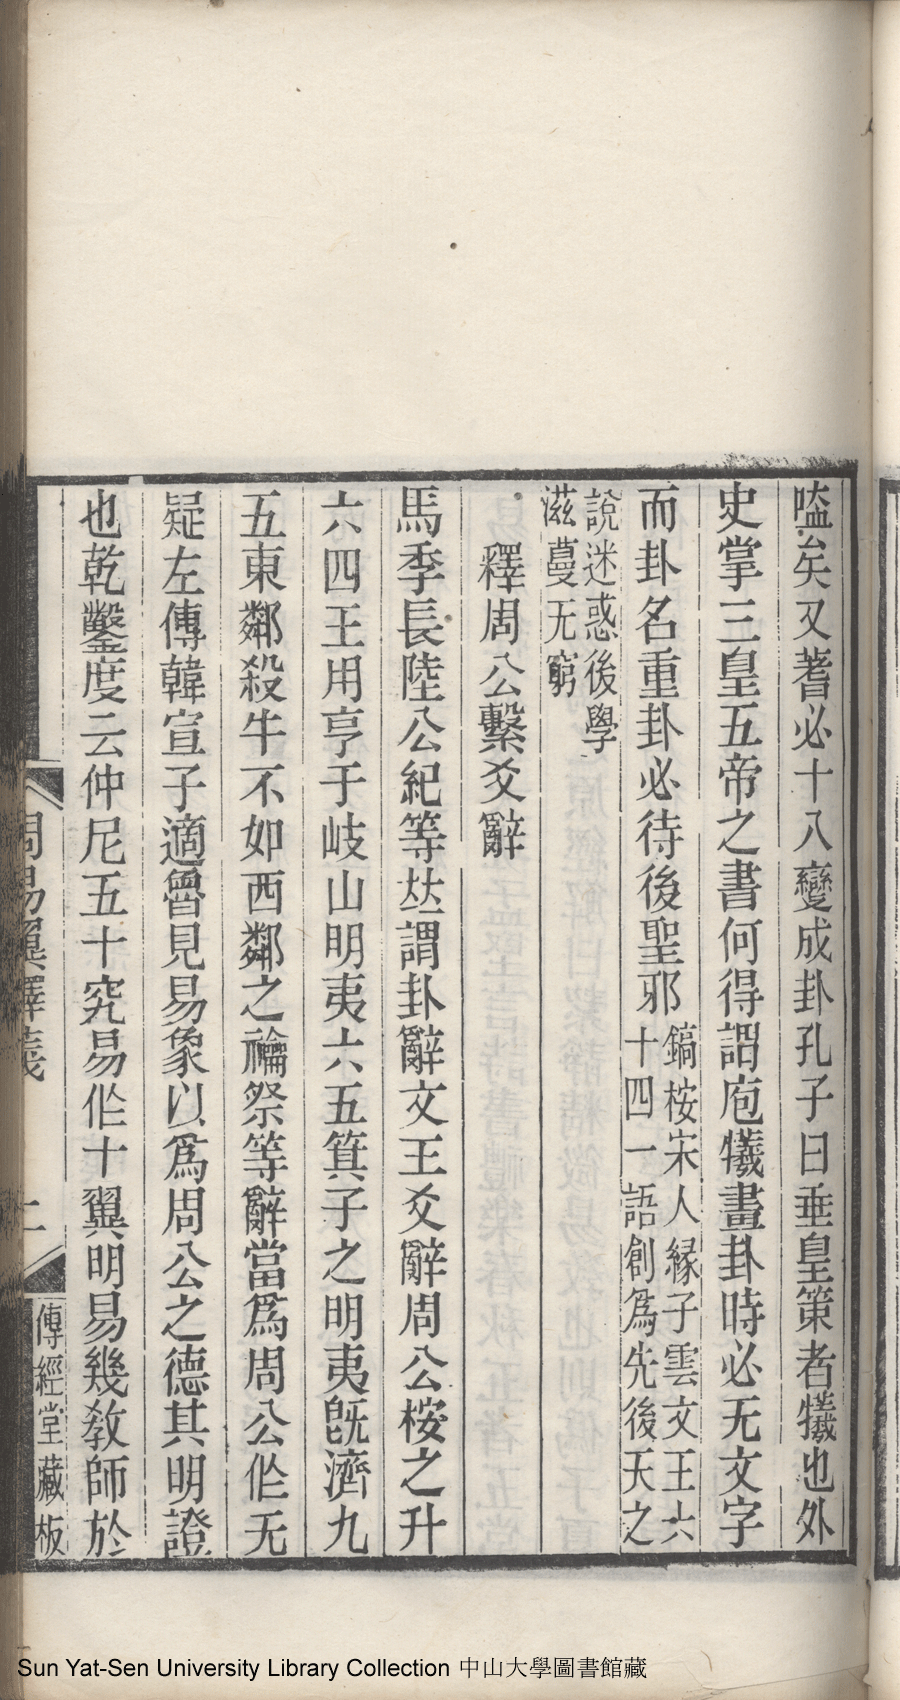 嗑矣又蓍必十八變成卦孔子曰垂皇策者犧也外
史掌三皇五帝之書何得謂庖犧畫卦時必无文字
而卦名重卦必待後聖邪鎬桉宋人緣子雲文王六
十四一語創爲先後天之
說迷惑後學
滋蔓无窮
釋周公繫爻辭
馬季長陸公紀等𠀤謂卦辭文王爻辭周公桉之升
六四王用亨于岐山明夷六五箕子之明夷旣濟九
五東鄰殺牛不如西鄰之禴祭等辭當爲周公作无
疑左傳韓宣子適魯見易象以爲周公之德其明證
也乾鑿度云仲尼五十究易作十翼明易幾教師於
周易翼釋義
二
傳經堂藏板
Sun Yat-Sen University Library Collection 中山大學圖書館藏